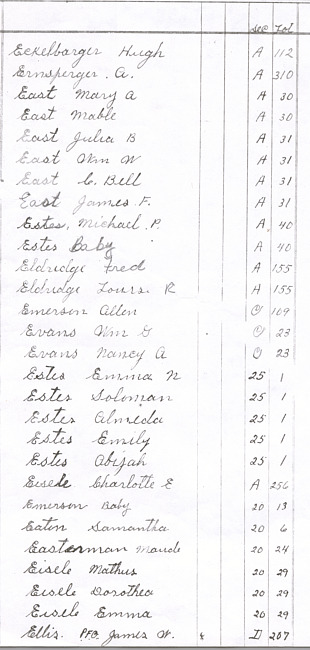 Sec Lot
Eckelbarger Hugh A 112
Ernsperger. A. A 310
East Mary A A 30
East Mable A 30
East Julia B A 31
East Wm W A 31
East C. Bell A 31
East James F. A 31
Estes, Michael P. A. 40
Estes Baby A 40
Eldridge Fred A 155
Eldridge Lours. R A 155
Emerson Allen O 109
Evans Wm G O 23
Evans Nancy A O 23
Estes Emma N 25 1
Estes Soloman 25 1
Estes Almeda 25 1
Estes Emily 25 1
Estes Abijah 25 1
Eisele Charlotte E A 256
Emerson Baby 20 13
Eaton Samantha 20 6
Easterman Maude 20 24
Eisele Mathus 20 29
Eisele Dorothea 20 29
Eisele Emma 20 29
Ellis. PFC. James W. D 207